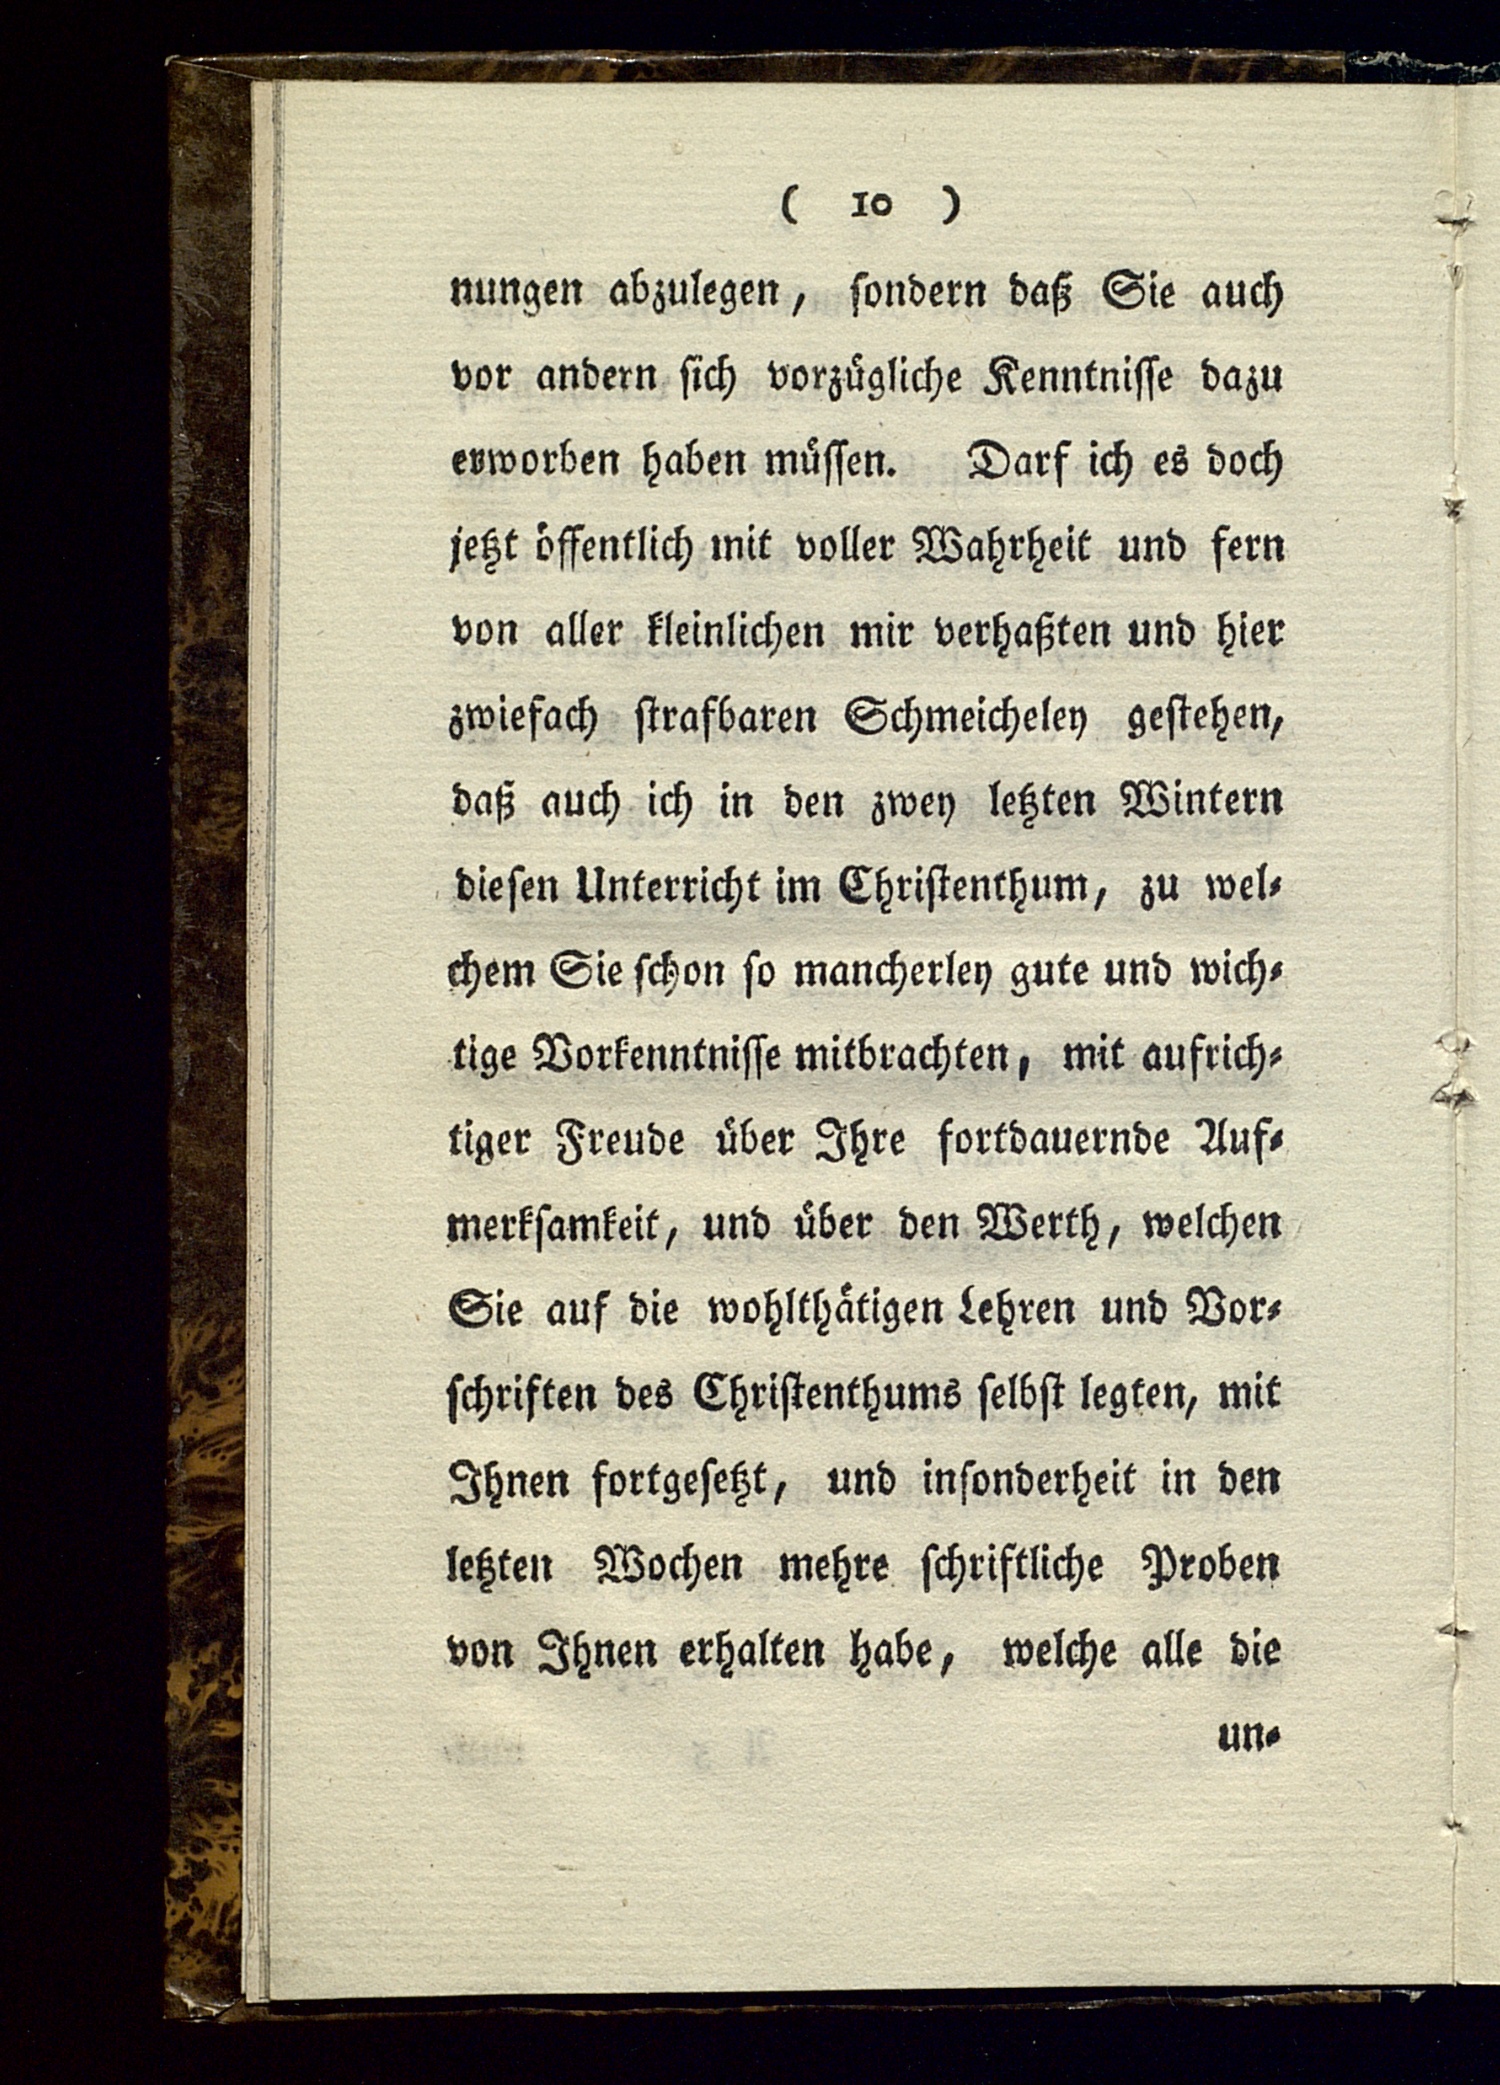 ( 10 )
nungen abzulegen, ſondern daß Sie auch
vor andern ſich vorzuͤgliche Kenntniſſe dazu
erworben haben muͤſſen. Darf ich es doch
jetzt oͤffentlich mit voller Wahrheit und fern
von aller kleinlichen mir verhaßten und hier
zwiefach ſtrafbaren Schmeicheley geſtehen,
daß auch ich in den zwey letzten Wintern
dieſen Unterricht im Chriſtenthum, zu wel⸗
chem Sie ſchon ſo mancherley gute und wich⸗
tige Vorkenntniſſe mitbrachten, mit aufrich⸗
tiger Freude uͤber Ihre fortdauernde Auf⸗
merkſamkeit, und uͤber den Werth, welchen
Sie auf die wohlthaͤtigen Lehren und Vor⸗
ſchriften des Chriſtenthums ſelbſt legten, mit
Ihnen fortgeſetzt, und inſonderheit in den
letzten Wochen mehre ſchriftliche Proben
von Ihnen erhalten habe, welche alle die
un⸗